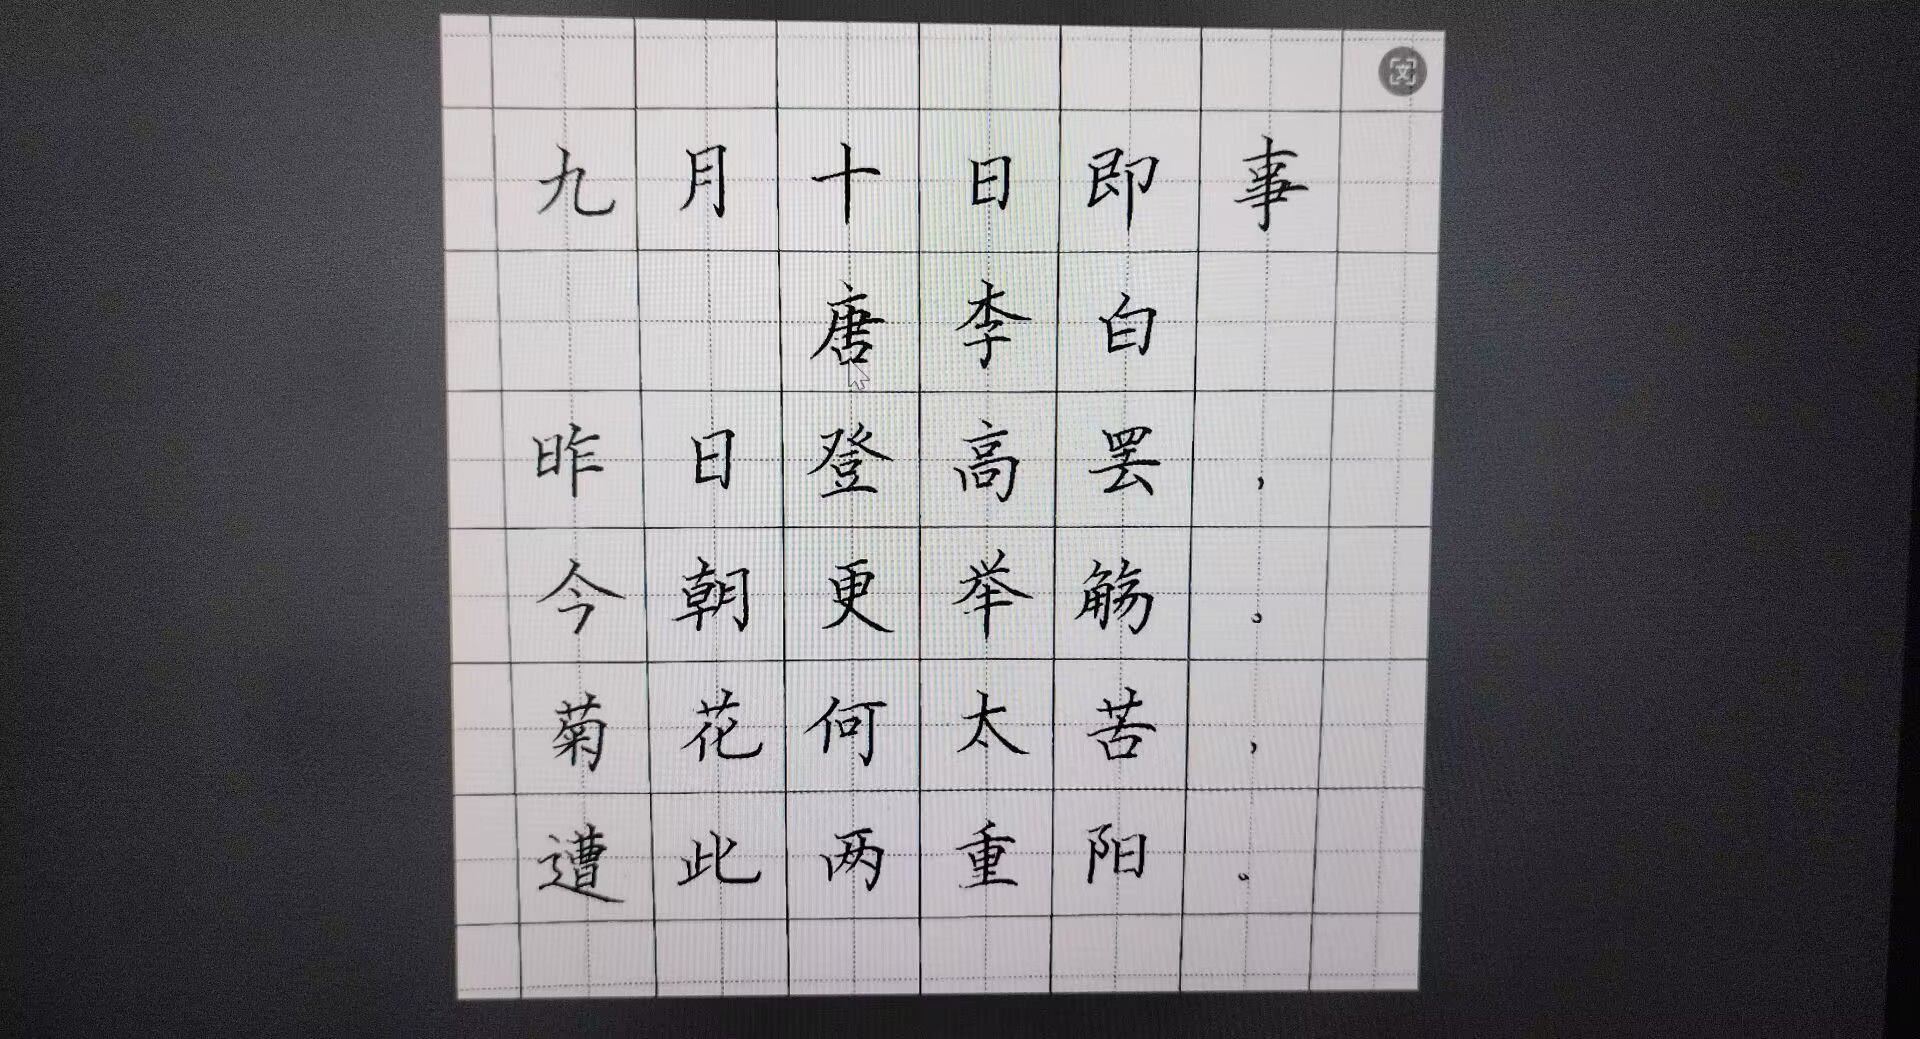 九月十日即事
唐李白
昨日登高罢，
今朝更举觞。
菊花何太苦，
遭此两重阳。